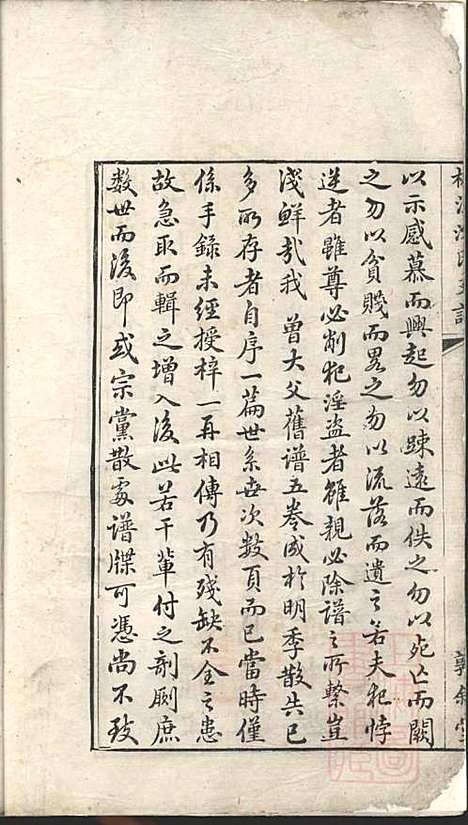 以示感慕而興起勿以踈遠而佚之勿以死亡而闕
之勿以貧賤而畧之勿以流落而遺之若夫犯悖
逆者雖尊必削犯淫盗者雖親必除譜之所繫豈
淺鮮哉我 曾大父舊譜五卷成於明季散失已
多所存者自序一篇世系世次數頁而已當時僅
係手錄未經授梓一再相傳乃有殘缺不全之患
故急取而輯之增入後此若干軰付之剞劂庶
数世而後即或宗黨散處譜牒可憑尚不致